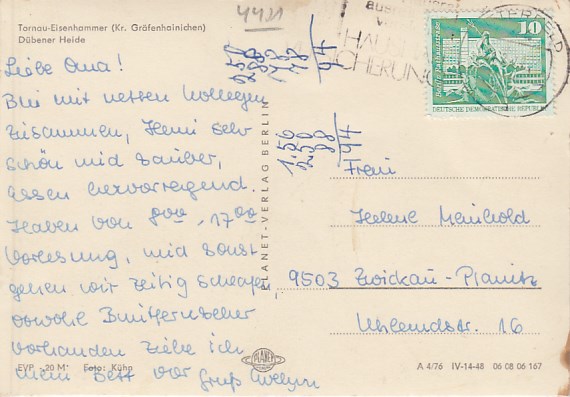 4421
Tornau-Eisenhammer (Kr. Gräfenhainichen)
Dübener Heide
Liebe Oma!
Bin mit netten Kollegen
zusammen, Heim sehr
schön und sauber,
essen hervorragend.
Haben von 8⁰⁰-17⁰⁰
Vorlesung, und sonst
gehen wir zeitig schlafen
obwohl
vorhanden ziehe ich
mein Bett vor Gruß Evelyn
EVP -,20 M Foto: Kühn
PLANET
PLANET-VERLAG BERLIN
A 4/76 IV-14-48 06 08 06 167
HAUS
SICHERUNG
10
DEUTSCHE DEMOKRATISCHE REPUBLIK
1.56
94
Frau
Helene Meinhold
9503 Zwickau-Planitz
Uhlandstr. 16